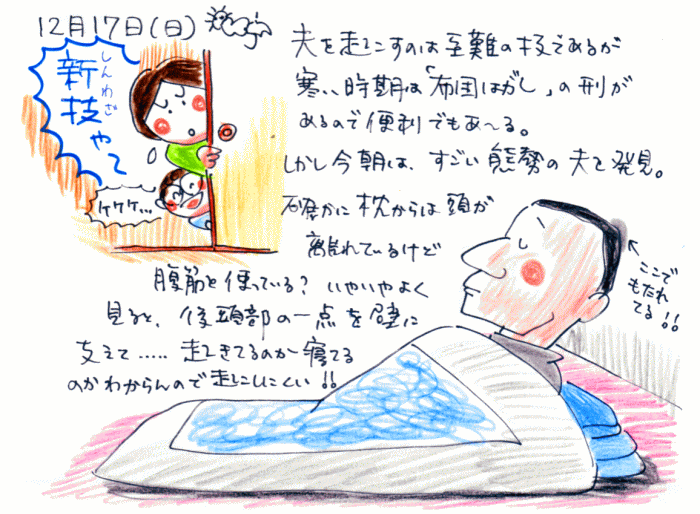 12月17日(日)
しんわざ
新技やて
ケケケ…
夫を起こすのは至難の技であるが
寒い時期は「布団はがし」の刑が
あるので便利でもあ〜る。
しかし今朝は、すごい態勢の夫を発見。
確かに枕からは頭が
離れているけど
腹筋を使っている？いやいやよく
見ると、後頭部の一点を壁に
支えて……起きてるのか寝てる
のかわからんので起こしにくい!!
ここで
もたれ
てる!!